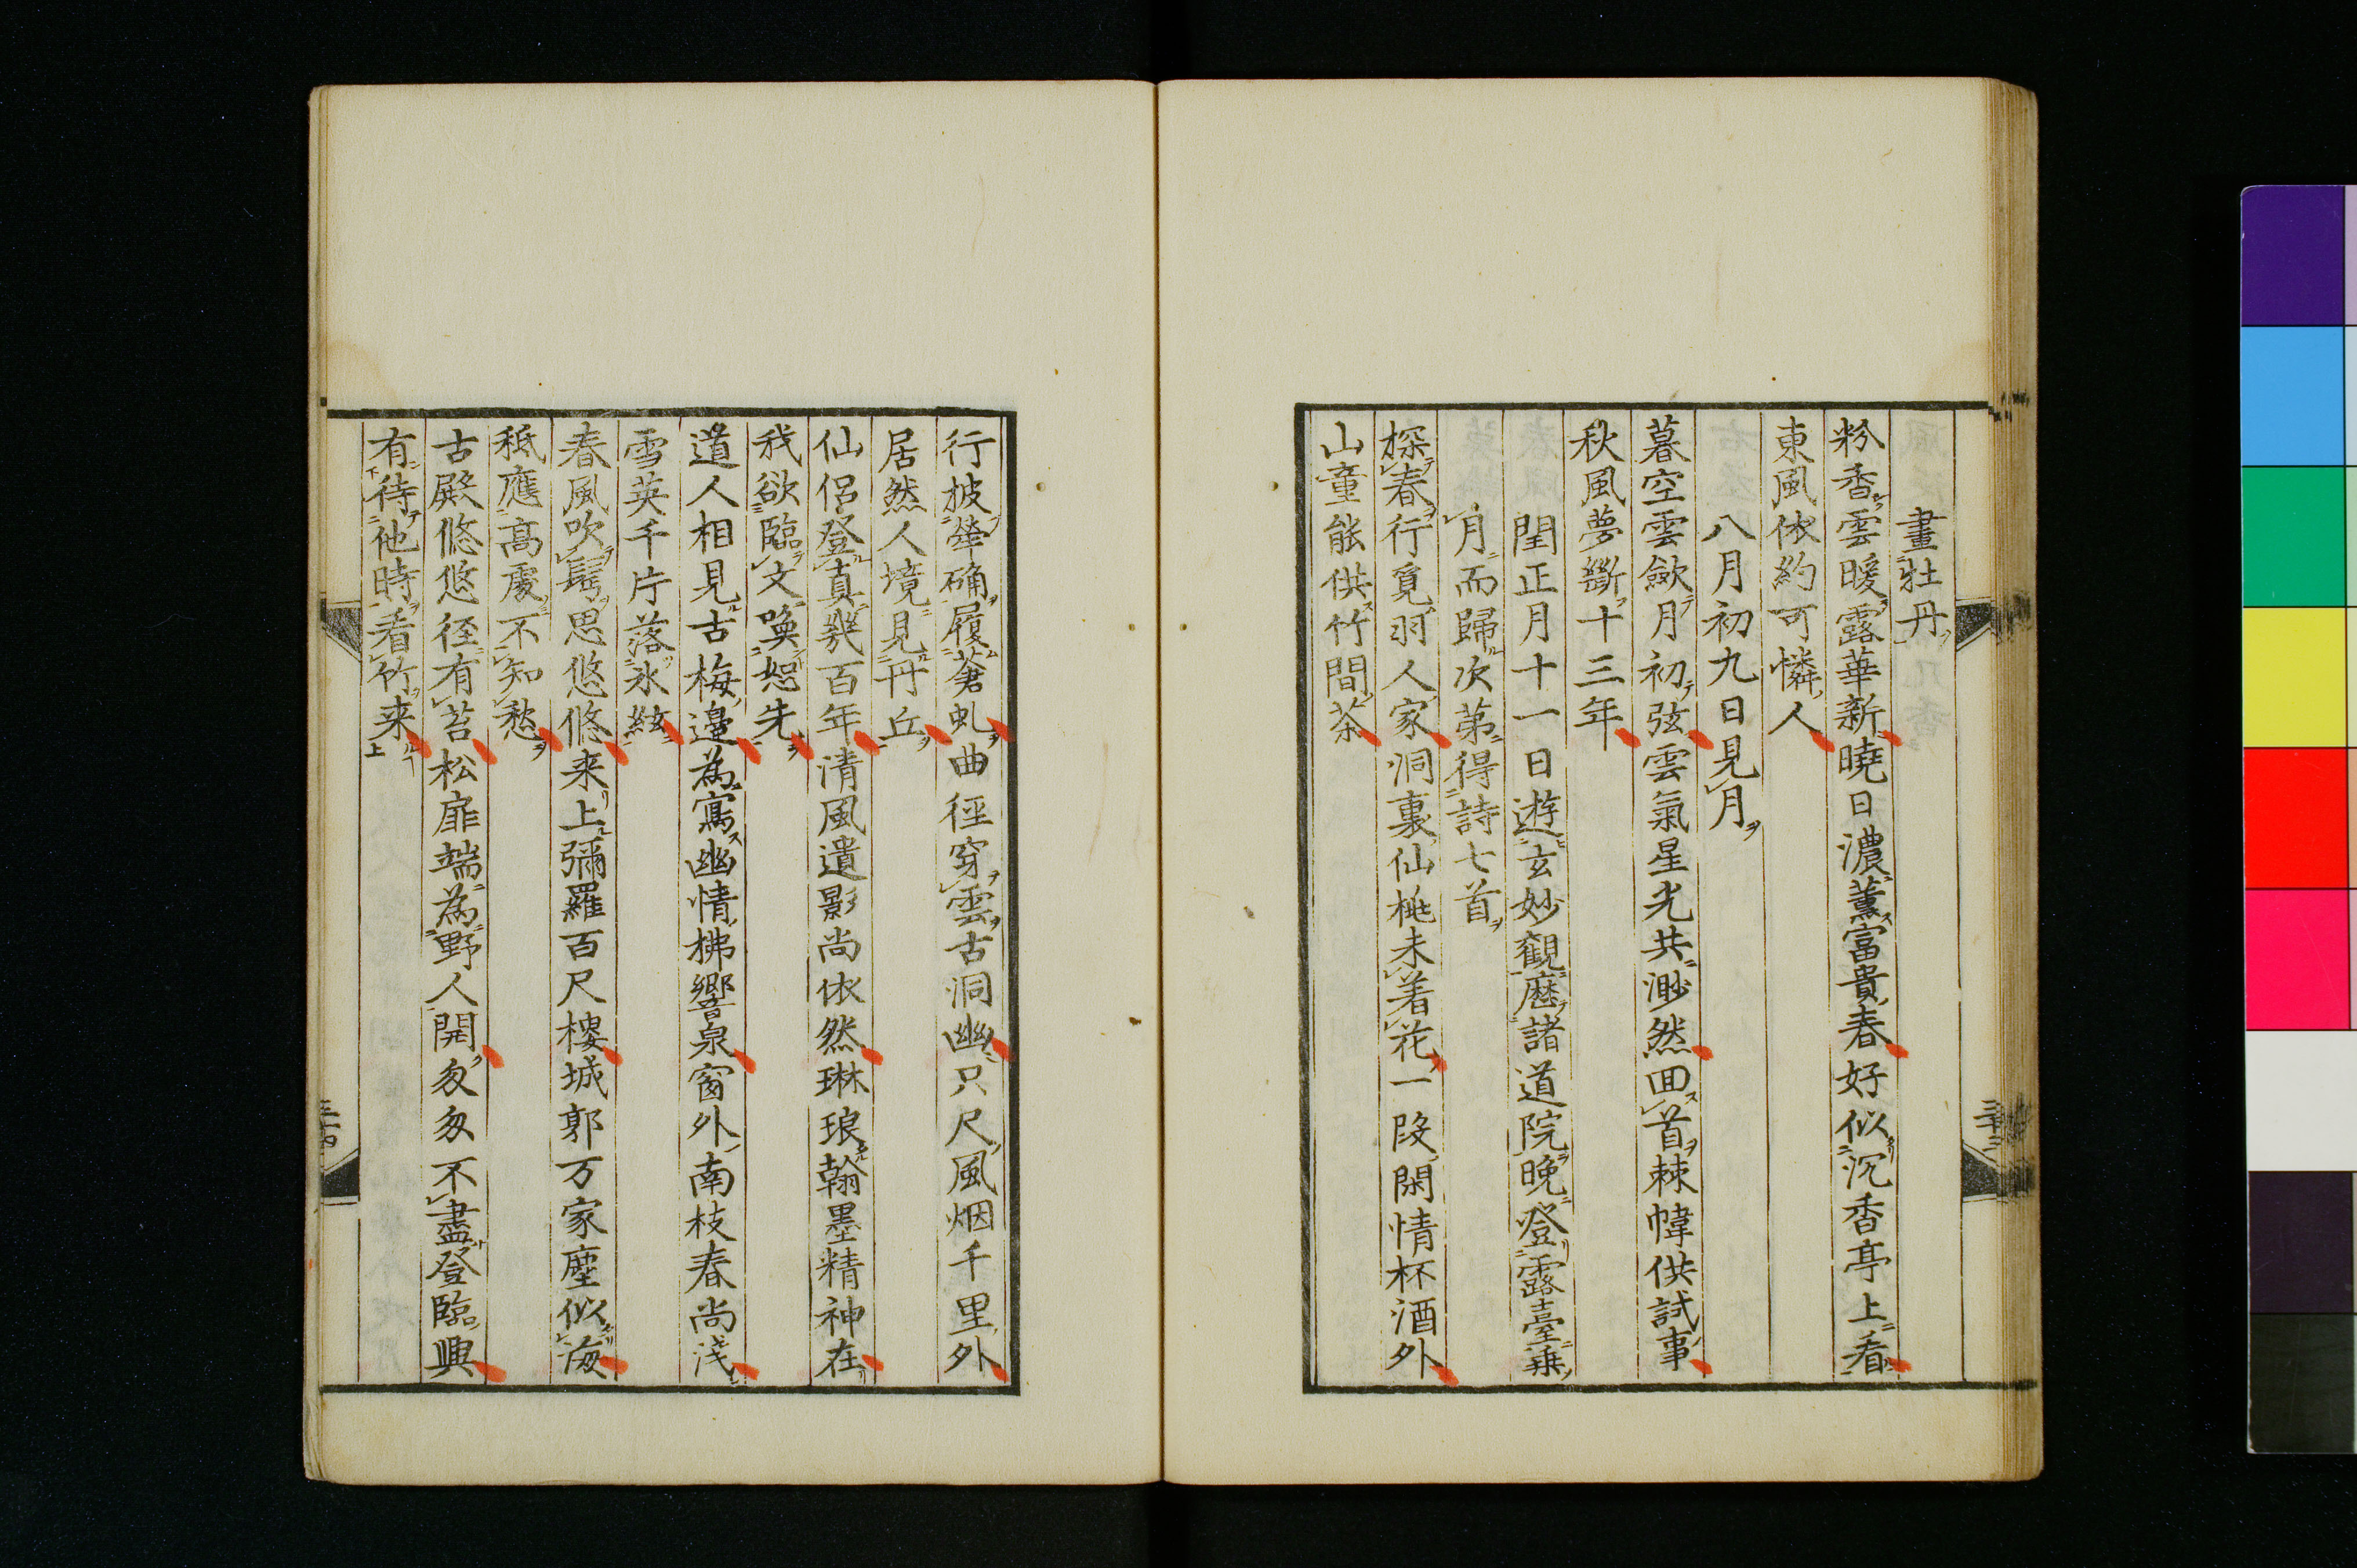 畫牡丹
粉香雲暖露華新曉日濃薰富貴春好似沉香亭上看
東風依約可憐人
八月初九日見月
暮空雲歛月初弦雲氣星光共渺然回首棘幃供試事
秋風夢斷十三年
閏正月十一日遊玄妙觀歷諸道院晚登露臺乗
月而歸次第得詩七首
探春行覓羽人家洞裏仙桃未着花一段閑情杯酒外
山童能供竹間茶
行披犖确履蒼虬曲徑穿雲古洞幽只尺風烟千里外
居然人境見丹丘
仙侣登真幾百年清風遺影尚依然琳琅翰墨精神在
我欲臨文喚恕先
道人相見古梅邉為寫幽情拂響泉窗外南枝春尚淺
雪英千片落氷絃
春風吹鬢思悠悠来上彌羅百尺樓城郭万家塵似海
秪應髙處不知愁
古殿悠悠徑有苔松扉端為野人開匆匆不盡登臨興
有待他時看竹来